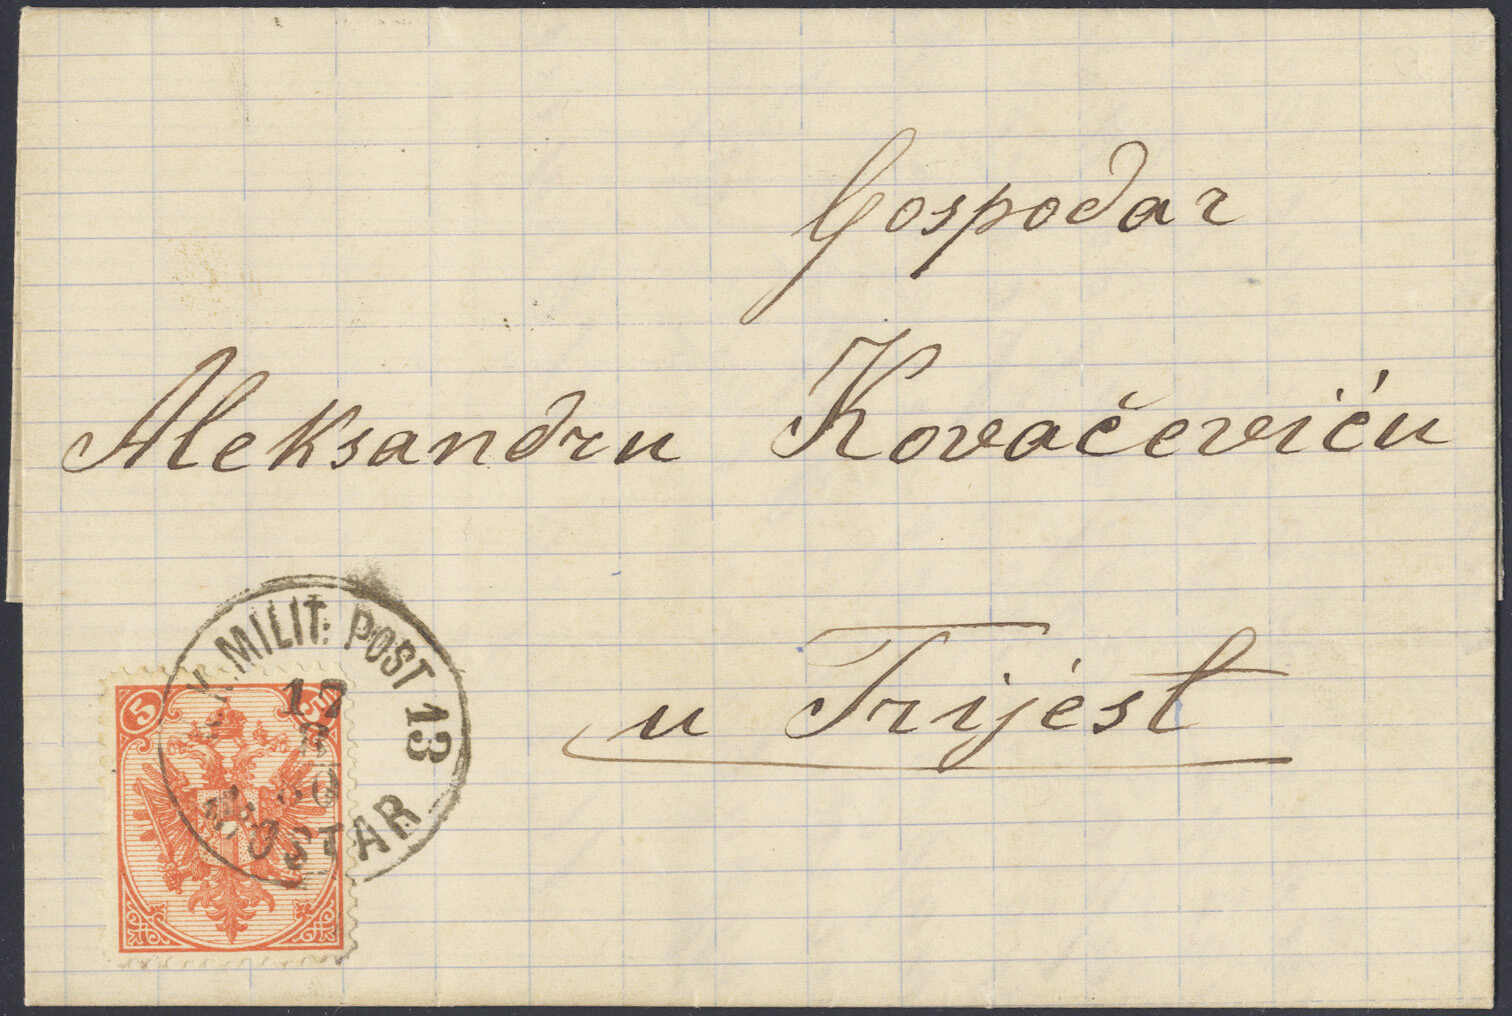 Gospodar
Aleksandru Kovačeviću
u Trijest
K.K. MILIT: POST 13
17
80
MOSTAR
5
5